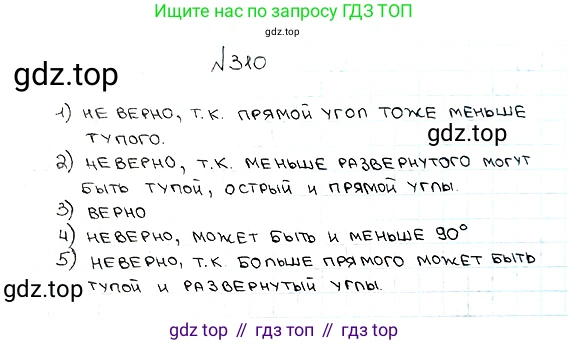 Ищите нас по запросу ГДЗ ТОП
gdz.top
№310
gdz.top
1) НЕ ВЕРНО, Т.К. ПРЯМОЙ УГОЛ ТОЖЕ МЕНЬШЕ
ТУПОГО.
gdz.top
2) НЕВЕРНО, Т.К. МЕНЬШЕ РАЗВЕРНУТОГО МОГУТ
БЫТЬ ТУПОЙ, ОСТРЫЙ И ПРЯМОЙ УГЛЫ.
3) ВЕРНО
4) НЕВЕРНО, МОЖЕТ БЫТЬ И МЕНЬШЕ 90°
5) НЕВЕРНО, Т.К. БОЛЬШЕ ПРЯМОГО МОЖЕТ БЫТЬ
gdz.top
ТУПОЙ И РАЗВЕРНУТЫЙ УГЛЫ.
gdz top // гдз топ // gdz top